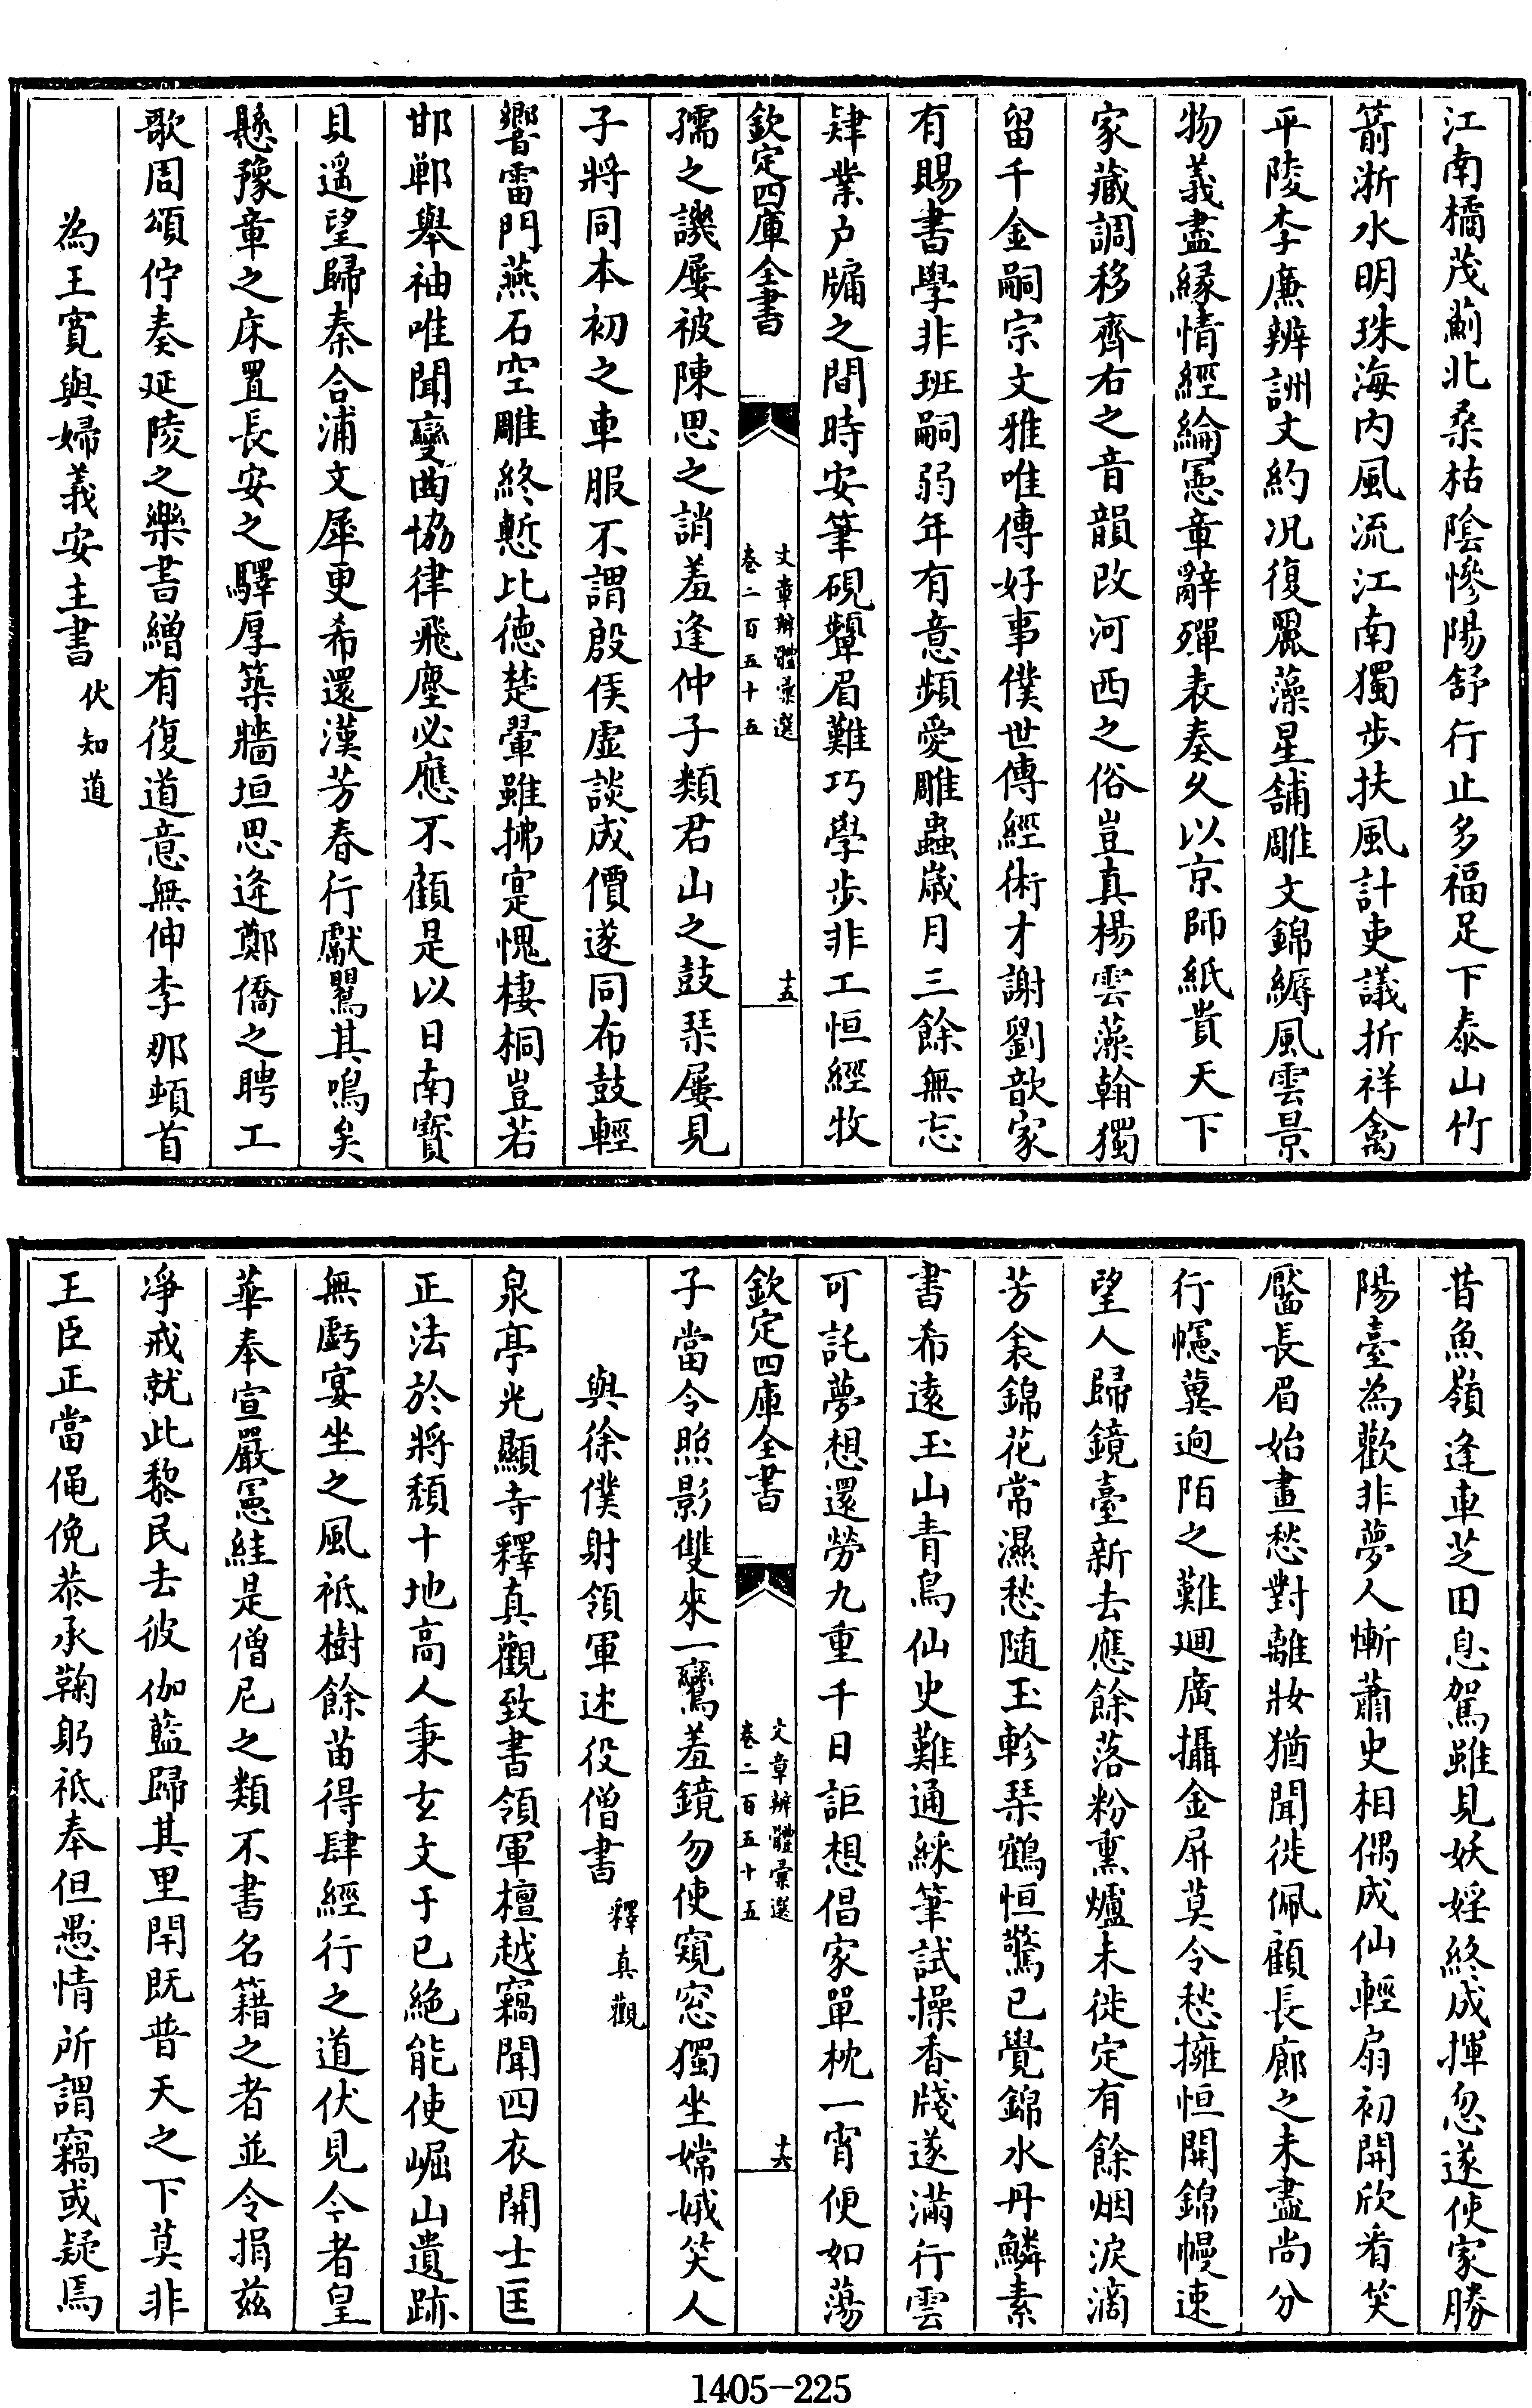 江南橘茂薊北桑枯陰慘陽舒行止多福足下泰山竹
箭浙水明珠海内風流江南獨步扶風計吏議折祥禽
平陵李廉辨詶文約况復麗藻星舖雕文錦縟風雲景
物義盡緣情經綸憲章辭殫表奏久以京師紙貴天下
家藏調移齊右之音韻改河西之俗豈真楊雲藻翰獨
留千金嗣宗文雅唯傳好事僕世傳經術才謝劉歆家
有賜書學非班嗣弱年有意頻愛雕蟲歲月三餘無忘
肄業户牖之間時安筆硯顰眉難巧學步非工恒經牧
欽定四庫全書
文章辨體彙選
卷二百五十五
十五
孺之譏屢被陳思之誚羞逢仲子類君山之鼓琴屢見
子將同本初之車服不謂殷侯虚談成價遂同布鼓輕
響雷門燕石空雕終慙比德楚翬雖拂寔愧棲桐豈若
邯鄲舉袖唯聞變曲協律飛塵必應不顧是以日南寳
貝遥望歸秦合浦文犀更希還漢芳春行獻罵其鳴矣
懸豫章之床置長安之驛厚築牆垣思逢鄭僑之聘工
歌周頌佇奏延陵之樂書繒有復道意無伸李那頓首
為王寛與婦義安主書伏知道
昔魚嶺逢車芝田息駕雖見妖婬終成揮忽遂使家勝
陽臺為歡非夢人慚蕭史相偶成仙輕扇初開欣看笑
靨長眉始畫愁對離妝猶聞徙佩顧長廊之未盡尚分
行幰冀迥陌之難迴廣攝金屏莫令愁擁恒開錦幔速
望人歸鏡臺新去應餘落粉熏爐未徙定有餘烟淚滴
芳衾錦花常濕愁隨玉軫琴鶴恒驚已覺錦水丹鱗素
書希遠玉山青鳥仙史難通綵筆試操香牋遂滿行雲
可託夢想還勞九重千日詎想倡家單枕一宵便如蕩
欽定四庫全書
文章辨體彙選
卷二百五十五
十六
子當令照影雙來一鸞羞鏡勿使窺窓獨坐嫦娥笑人
與徐僕射領軍述役僧書釋真觀
泉亭光顯寺釋真觀致書領軍檀越竊聞四衣開士匡
正法於將頹十地高人秉玄文于已絶能使崛山遺跡
無虧宴坐之風祗樹餘苗得肆經行之道伏見今者皇
華奉宣嚴憲絓是僧尼之類不書名籍之者並令捐兹
凈戒就此黎民去彼伽藍歸其里閈既普天之下莫非
王臣正當僶俛恭承鞠躬祗奉但愚情所謂竊或疑焉
1405-225